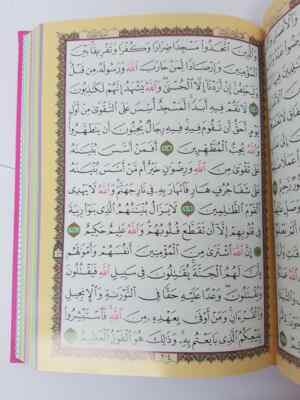 وَٱلَّذِينَ ٱتَّخَذُوا۟ مَسْجِدًا ضِرَارًا وَكُفْرًا وَتَفْرِيقًۢا بَيْنَ
ٱلْمُؤْمِنِينَ وَإِرْصَادًا لِّمَنْ حَارَبَ ٱللَّهَ وَرَسُولَهُۥ مِن قَبْلُ
وَلَيَحْلِفُنَّ إِنْ أَرَدْنَآ إِلَّا ٱلْحُسْنَىٰ وَٱللَّهُ يَشْهَدُ إِنَّهُمْ لَكَٰذِبُونَ
١٠٧ لَا تَقُمْ فِيهِ أَبَدًا لَّمَسْجِدٌ أُسِّسَ عَلَى ٱلتَّقْوَىٰ مِنْ أَوَّلِ
يَوْمٍ أَحَقُّ أَن تَقُومَ فِيهِ فِيهِ رِجَالٌ يُحِبُّونَ أَن يَتَطَهَّرُوا۟
وَٱللَّهُ يُحِبُّ ٱلْمُطَّهِّرِينَ ١٠٨ أَفَمَنْ أَسَّسَ بُنْيَٰنَهُۥ
عَلَىٰ تَقْوَىٰ مِنَ ٱللَّهِ وَرِضْوَٰنٍ خَيْرٌ أَم مَّنْ أَسَّسَ بُنْيَٰنَهُۥ
عَلَىٰ شَفَا جُرُفٍ هَارٍ فَٱنْهَارَ بِهِۦ فِى نَارِ جَهَنَّمَ وَٱللَّهُ لَا يَهْدِى
ٱلْقَوْمَ ٱلظَّٰلِمِينَ ١٠٩ لَا يَزَالُ بُنْيَٰنُهُمُ ٱلَّذِى بَنَوْا۟ رِيبَةً
فِى قُلُوبِهِمْ إِلَّآ أَن تَقَطَّعَ قُلُوبُهُمْ وَٱللَّهُ عَلِيمٌ حَكِيمٌ ١١٠
إِنَّ ٱللَّهَ ٱشْتَرَىٰ مِنَ ٱلْمُؤْمِنِينَ أَنفُسَهُمْ وَأَمْوَٰلَهُم
بِأَنَّ لَهُمُ ٱلْجَنَّةَ يُقَٰتِلُونَ فِى سَبِيلِ ٱللَّهِ فَيَقْتُلُونَ
وَيُقْتَلُونَ وَعْدًا عَلَيْهِ حَقًّا فِى ٱلتَّوْرَىٰةِ وَٱلْإِنجِيلِ
وَٱلْقُرْءَانِ وَمَنْ أَوْفَىٰ بِعَهْدِهِۦ مِنَ ٱللَّهِ فَٱسْتَبْشِرُوا۟
بِبَيْعِكُمُ ٱلَّذِى بَايَعْتُم بِهِۦ وَذَٰلِكَ هُوَ ٱلْفَوْزُ ٱلْعَظِيمُ
٢٠٤